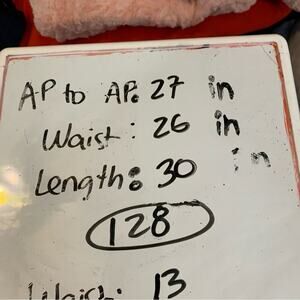 AP to AP: 27 in
Waist: 26 in
Length: 30 in
128
Waist: 13